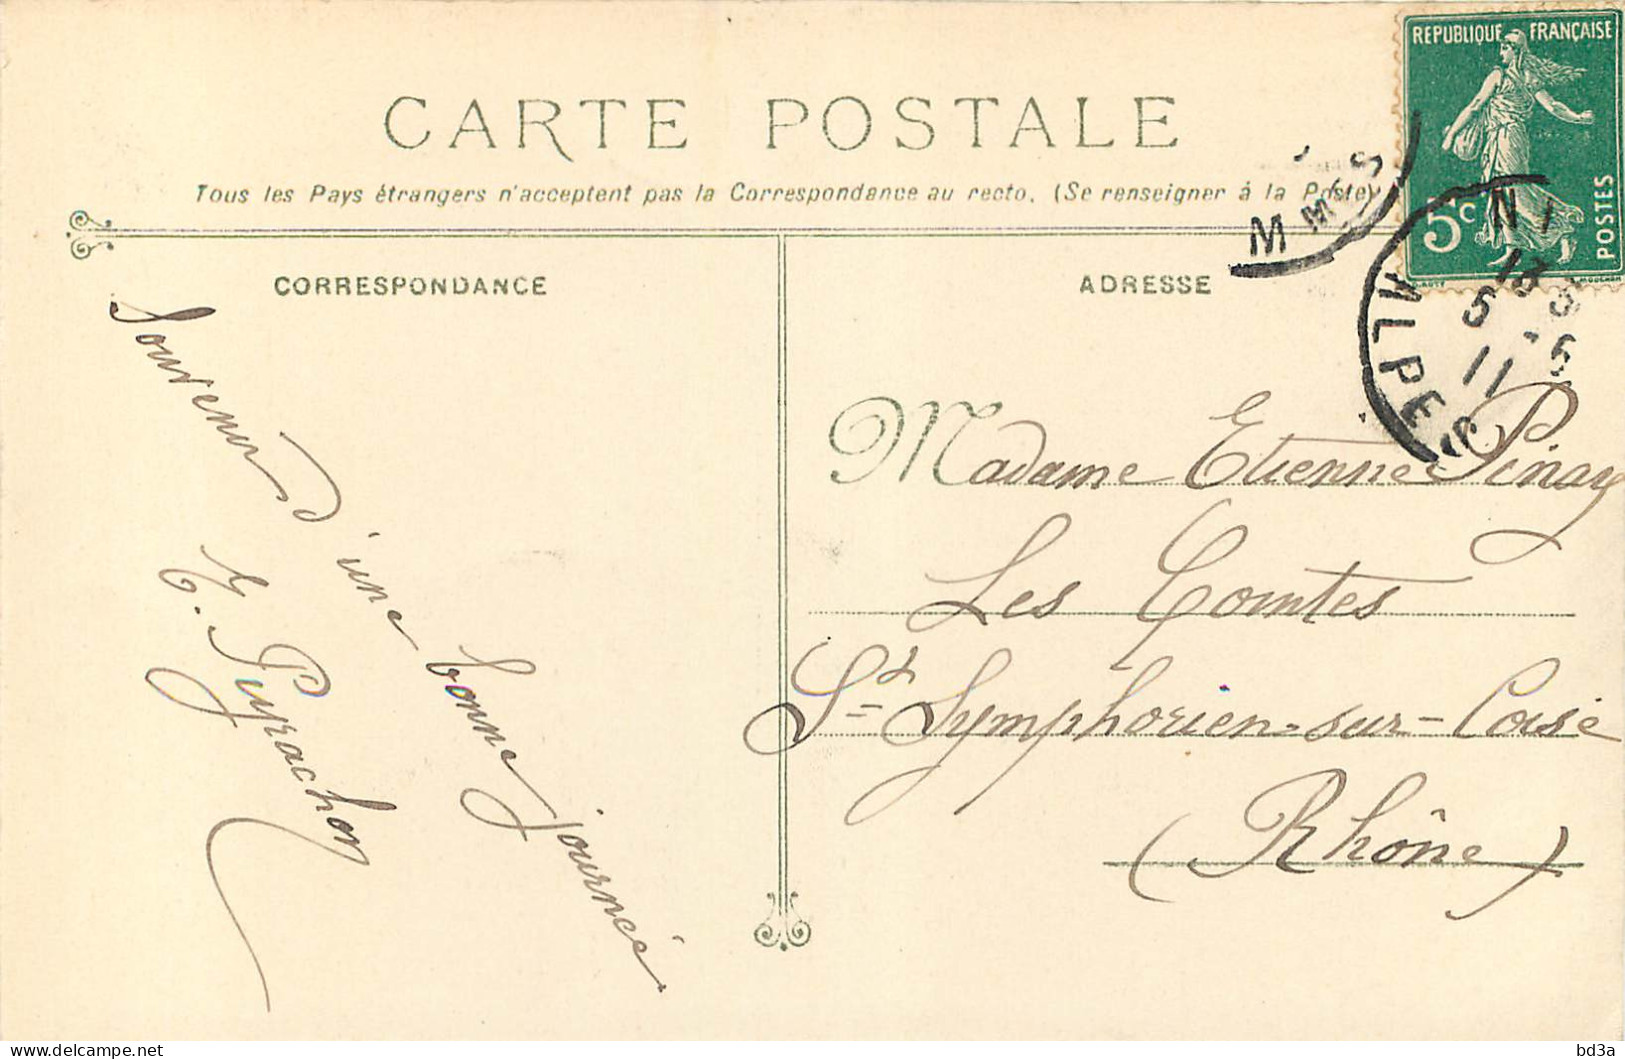 CARTE POSTALE
Tous les Pays étrangers n'acceptent pas la Correspondance au recto. (Se renseigner à la Poste)
CORRESPONDANCE
ADRESSE
REPUBLIQUE FRANÇAISE
5c
POSTES
ALPES
13
5
11
Souvenir d'une bonne journée
Pyrachon
Madame Etienne Pinay
Les Comtes
St Symphorien-sur-Coise
(Rhône)
delcampe.net
bd3a